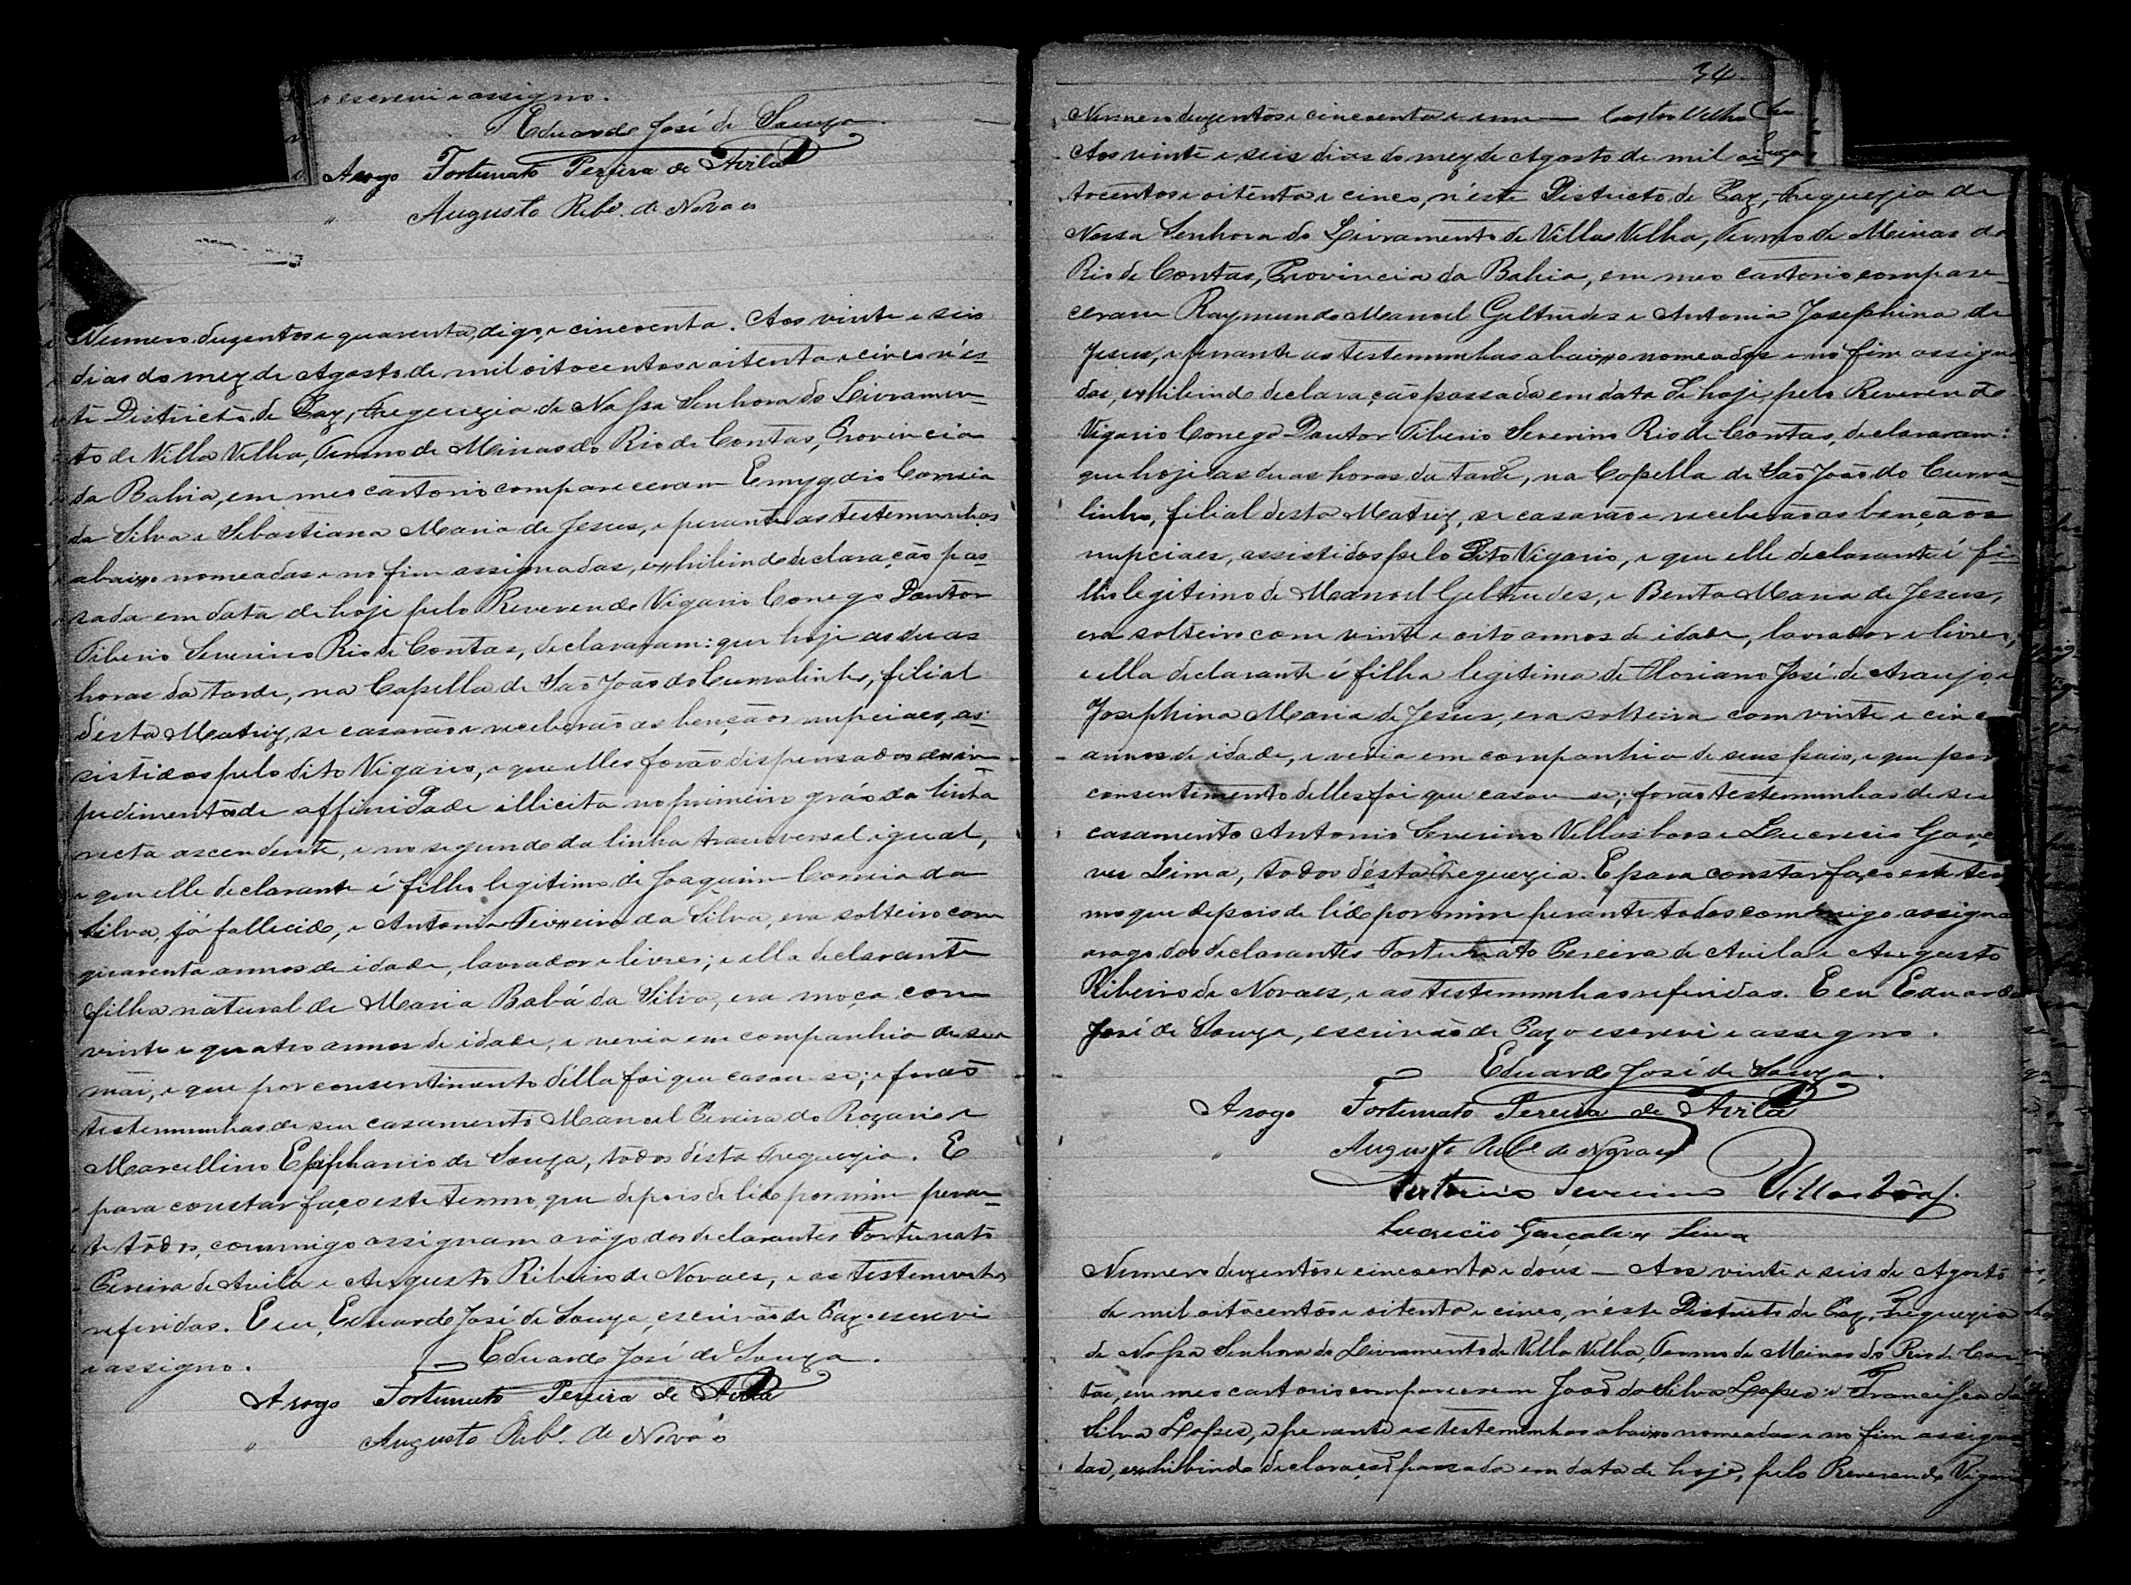 o escrevi e assigno.
Eduardo José de Souza.
Arogo Fortunato Pereira de Avila
" Augusto Ribr.º de Novaes
Numero duzentos e quarenta, digo, e cincoenta. Aos vinte e seis
dias do mez de Agosto de mil oitocentos e oitenta e cinco n'es-
te Districto de Paz, Freguezia de Nossa Senhora do Livramen-
to de Villa Velha, Termo de Minas do Rio de Contas, Provincia
da Bahia, em meo cartorio compareceram Emygdio Correia
da Silva e Sebastiana Maria de Jesus, e perante as testemunhas
abaixo nomeadas e no fim assignadas, exhibindo declaração pas-
sada em data de hoje pelo Reverendo Vigario Conego Doutor
Tiberio Severino Rio de Contas, declararam: que hoje as duas
horas da tarde, na Capella de São João do Curralinho, filial
d'esta Matriz, se casarão e receberão as bençãos nupciaes, as-
sistidos pelo dito Vigario, e que elles forão dispensados do im-
pedimento de affinidade illicita no primeiro gráo da linha
recta ascendente, e no segundo da linha transversal igual,
e que elle declarante é filho legitimo de Joaquim Correia da
Silva, já fallecido, e Antonia Teixeira da Silva, era solteiro com
quarenta annos de idade, lavrador e livres; e ella declarante
filha natural de Maria Babá da Silva, era moça com
vinte e quatro annos de idade, e vevia em companhia de sua
mãi, e que por consentimento d'ella foi que casou-se; e forão
testemunhas de seu casamento Manoel Pereira do Rozario e
Marcellino Epiphanio de Souza, todos d'esta Freguezia. E
para constar faço este termo que depois de lido por mim peran-
te todos, commigo assignam arôgo dos declarantes Fortunato
Pereira de Avila e Augusto Ribeiro de Novaes, e as testemunhas
referidas. E eu, Eduardo José de Souza, escrivão de Paz o escrevi
e assigno. Eduardo José de Souza.
Arogo Fortunato Pereira de Avila
" Augusto Ribr.º de Novaes
34
Numero duzentos e cincoenta e um —
Aos vinte e seis dias do mez de Agosto de mil oi
tocentos e oitenta e cinco, n'este Districto de Paz, Freguezia de
Nossa Senhora do Livramento de Villa Velha, Termo de Minas do
Rio de Contas, Provincia da Bahia, em meo cartorio compare-
ceram Raymundo Manoel Geltrudes e Antonia Josephina de
Jesus, e perante as testemunhas abaixo nomeadas e no fim assigna
das, exhibindo declaração passada em data de hoje pelo Reverendo
Vigario Conego Doutor Tiberio Severino Rio de Contas, declararam:
que hoje as duas horas da tarde, na Capella de São João do Curra-
linho, filial d'esta Matriz, se casarão e receberão as bençãos
nupciaes, assistidos pelo Dito Vigario, e que elle declarante é fi-
lho legitimo de Manoel Geltrudes, e Benta Maria de Jesus,
era solteiro com vinte e oito annos de idade, lavrador e livres;
e ella declarante é filha legitima de Floriano José de Araujo, e
Josephina Maria de Jesus, era solteira com vinte e cinco
annos de idade, e vevia em companhia de seus pais, e que por
consentimento d'elles foi que casou-se; forão testemunhas de seu
casamento Antonio Severino Villasboas e Lucrecio Gonçal
ves Lima, todos d'esta Freguezia. E para constar faço este ter
mo que depois de lido por mim perante todos commigo assigna
arogo dos declarantes Fortunato Pereira de Avila e Augusto
Ribeiro de Novaes, e as testemunhas referidas. E eu Eduardo
José de Souza, escrivão de Paz o escrevi e assigno.
Eduardo José de Souza.
Arogo Fortunato Pereira de Avila
" Augusto Ribr.º de Novaes
Antonio Severino Villasbôas.
Lucrecio Gonçalves Lima
Numero duzentos e cincoenta e dous — Aos vinte e seis de Agosto
de mil oitocentos e oitenta e cinco, n'este Districto de Paz, Freguezia
de Nossa Senhora do Livramento de Villa Velha, Termo de Minas do Rio de Con
tas, em meo cartorio compareceram João da Silva Lopes e Francisca da
Silva Lopes, e perante as testemunhas abaixo nomeadas e no fim assigna-
das, exhibindo declaração passada em data de hoje, pelo Reverendo Vigario